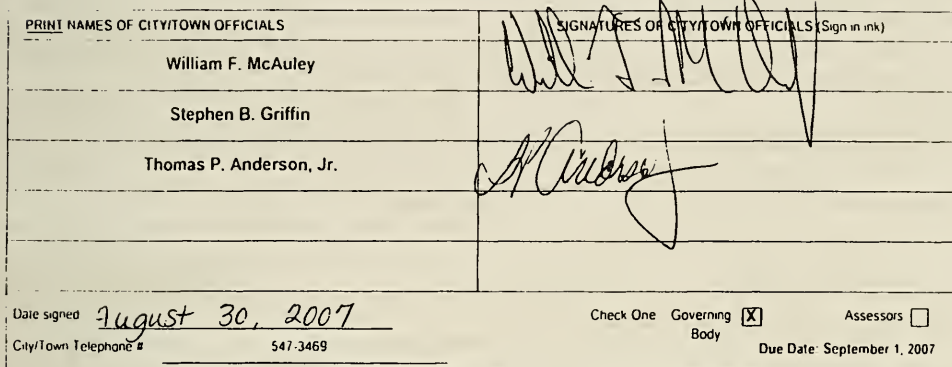 PRINT NAMES OF CITY/TOWN OFFICIALS SIGNATURES OF CITY/TOWN OFFICIALS (Sign in ink)
William F. McAuley
Stephen B. Griffin
Thomas P. Anderson, Jr.
Date signed August 30, 2007 Check One Governing Body X Assessors
City/Town Telephone # 547-3469 Due Date: September 1, 2007